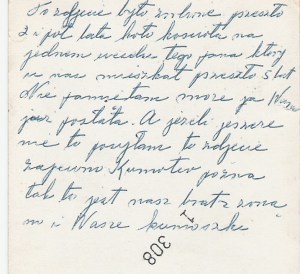 To zdjęcie było zrobione przeszło
2 i pół lata koło kościoła na
jednem weselu tego pana który
u nas mieszkał przeszło 5 lat
Nie pamiętam może ja Wam
już posłała. A jeżeli jeszcze
nie to posyłam to zdjęcie
zapewno Kumotev pozna
tak to jest nasz brat z żoną
m i Wasze kumoszki
1
308